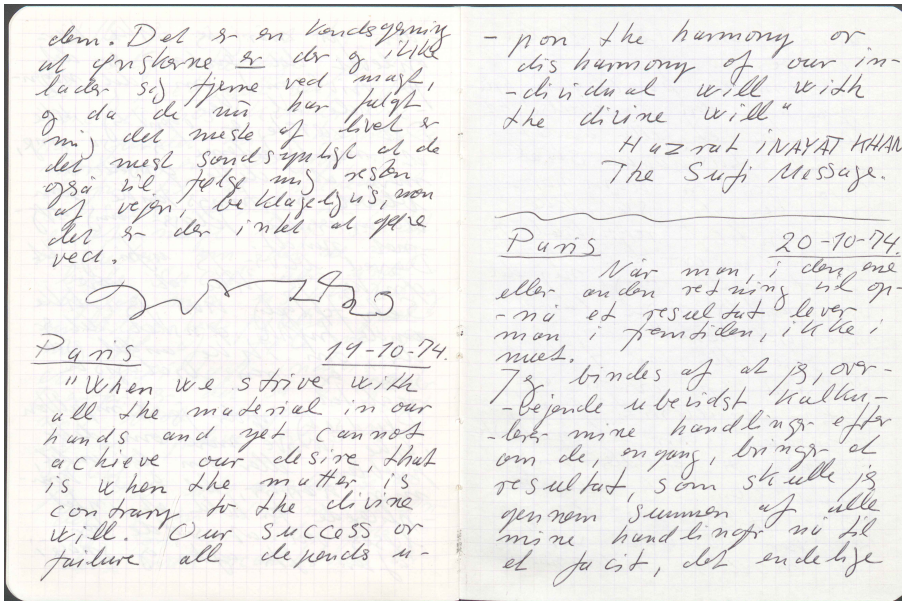 dem. Det er en kendsgerning
at ønskerne er der og ikke
lader sig fjerne ved magt,
og da de nu har fulgt
mig det meste af livet er
det mest sandsynligt at de
også vil følge mig resten
af vejen, beklageligvis, men
det er der intet at gøre
ved.
Paris 19-10-74.
"When we strive with
all the material in our
hands and yet cannot
achieve our desire, that
is when the matter is
contrary to the divine
will. Our success or
failure all depends u-
- pon the harmony or
disharmony of our in-
-dividual will with
the divine will"
Hazrat iNAYAT KHAN
The Sufi Message.
Paris 20-10-74.
Når man, i den ene
eller anden retning vil op-
-nå et resultat lever
man i fremtiden, ikke i
nuet.
Jeg bindes af at jeg, over-
-vejende ubevidst kalku-
-lerer mine handlinger efter
om de, engang, bringer et
resultat, som skulle jeg
gennem summen af alle
mine handlinger nå til
et facit, det endelige